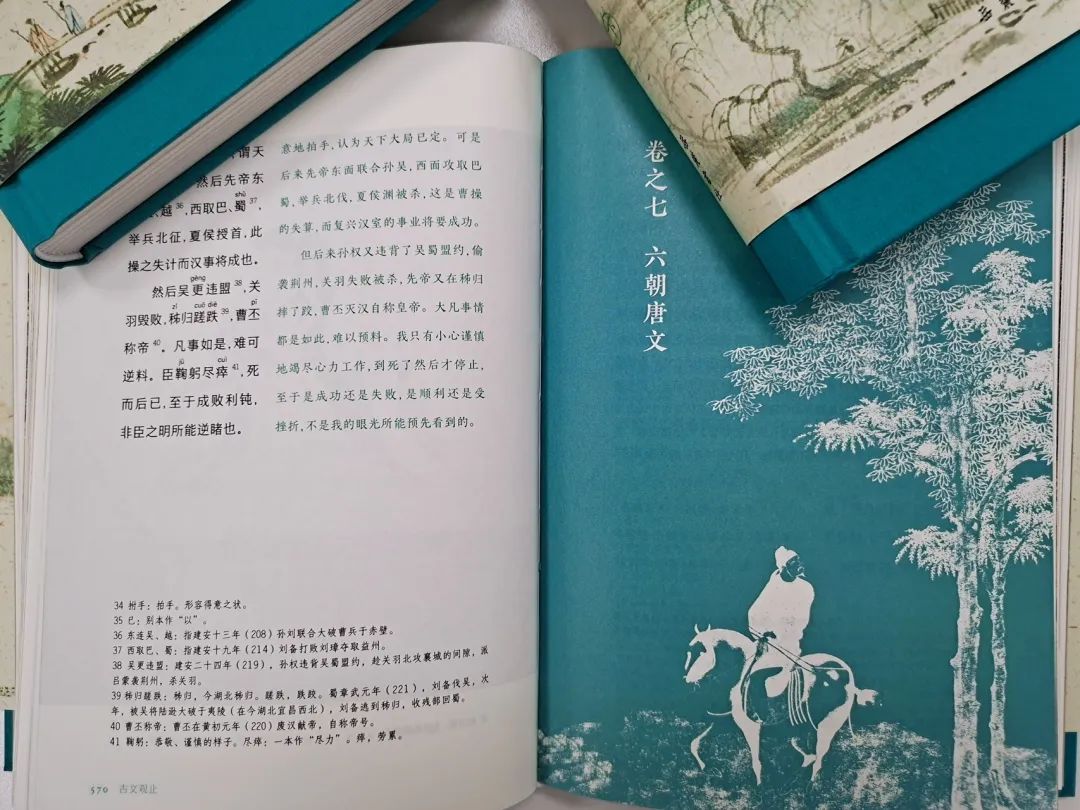 谓天
然后先帝东
shǔ
、越36，西取巴、蜀37，
举兵北征，夏侯授首，此
操之失计而汉事将成也。
gèng
然后吴更违盟38，关
zǐ cuō diē pī
羽毁败，秭归蹉跌39，曹丕
称帝40。凡事如是，难可
jū cuì
逆料。臣鞠躬尽瘁41，死
而后已，至于成败利钝，
非臣之明所能逆睹也。
意地拍手，认为天下大局已定。可是
后来先帝东面联合孙吴，西面攻取巴
蜀，举兵北伐，夏侯渊被杀，这是曹操
的失算，而复兴汉室的事业将要成功。
但后来孙权又违背了吴蜀盟约，偷
袭荆州，关羽失败被杀，先帝又在秭归
摔了跤，曹丕灭汉自称皇帝。大凡事情
都是如此，难以预料。我只有小心谨慎
地竭尽心力工作，到死了然后才停止，
至于是成功还是失败，是顺利还是受
挫折，不是我的眼光所能预先看到的。
34 拊手：拍手。形容得意之状。
35 已：别本作“以”。
36 东连吴、越：指建安十三年（208）孙刘联合大破曹兵于赤壁。
37 西取巴、蜀：指建安十九年（214）刘备打败刘璋夺取益州。
38 吴更违盟：建安二十四年（219），孙权违背吴蜀盟约，趁关羽北攻襄城的间隙，派
吕蒙袭荆州，杀关羽。
39 秭归蹉跌：秭归，今湖北秭归。蹉跌，跌跤。蜀章武元年（221），刘备伐吴，次
年，被吴将陆逊大破于夷陵（在今湖北宜昌西北），刘备逃到秭归，收残部回蜀。
40 曹丕称帝：曹丕在黄初元年（220）废汉献帝，自称帝号。
41 鞠躬：恭敬、谨慎的样子。尽瘁：一本作“尽力”。瘁，劳累。
570 古文观止
卷之七 六朝唐文